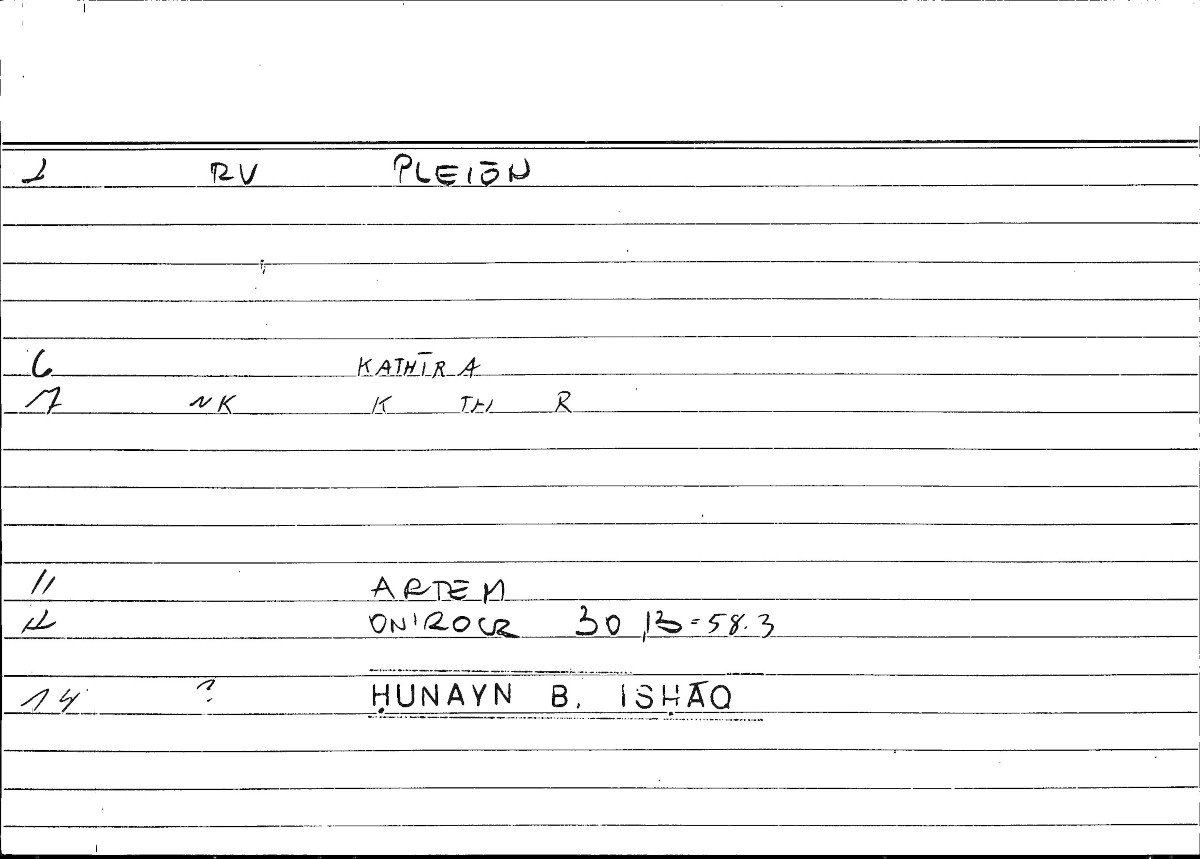 1 RV PLEIŌN
6 KATHĪR A
7 NK K TH R
11 ARTEM
12 ONIROCR 30,13 = 58.3
14 ? ḤUNAYN B. ISḤĀQ